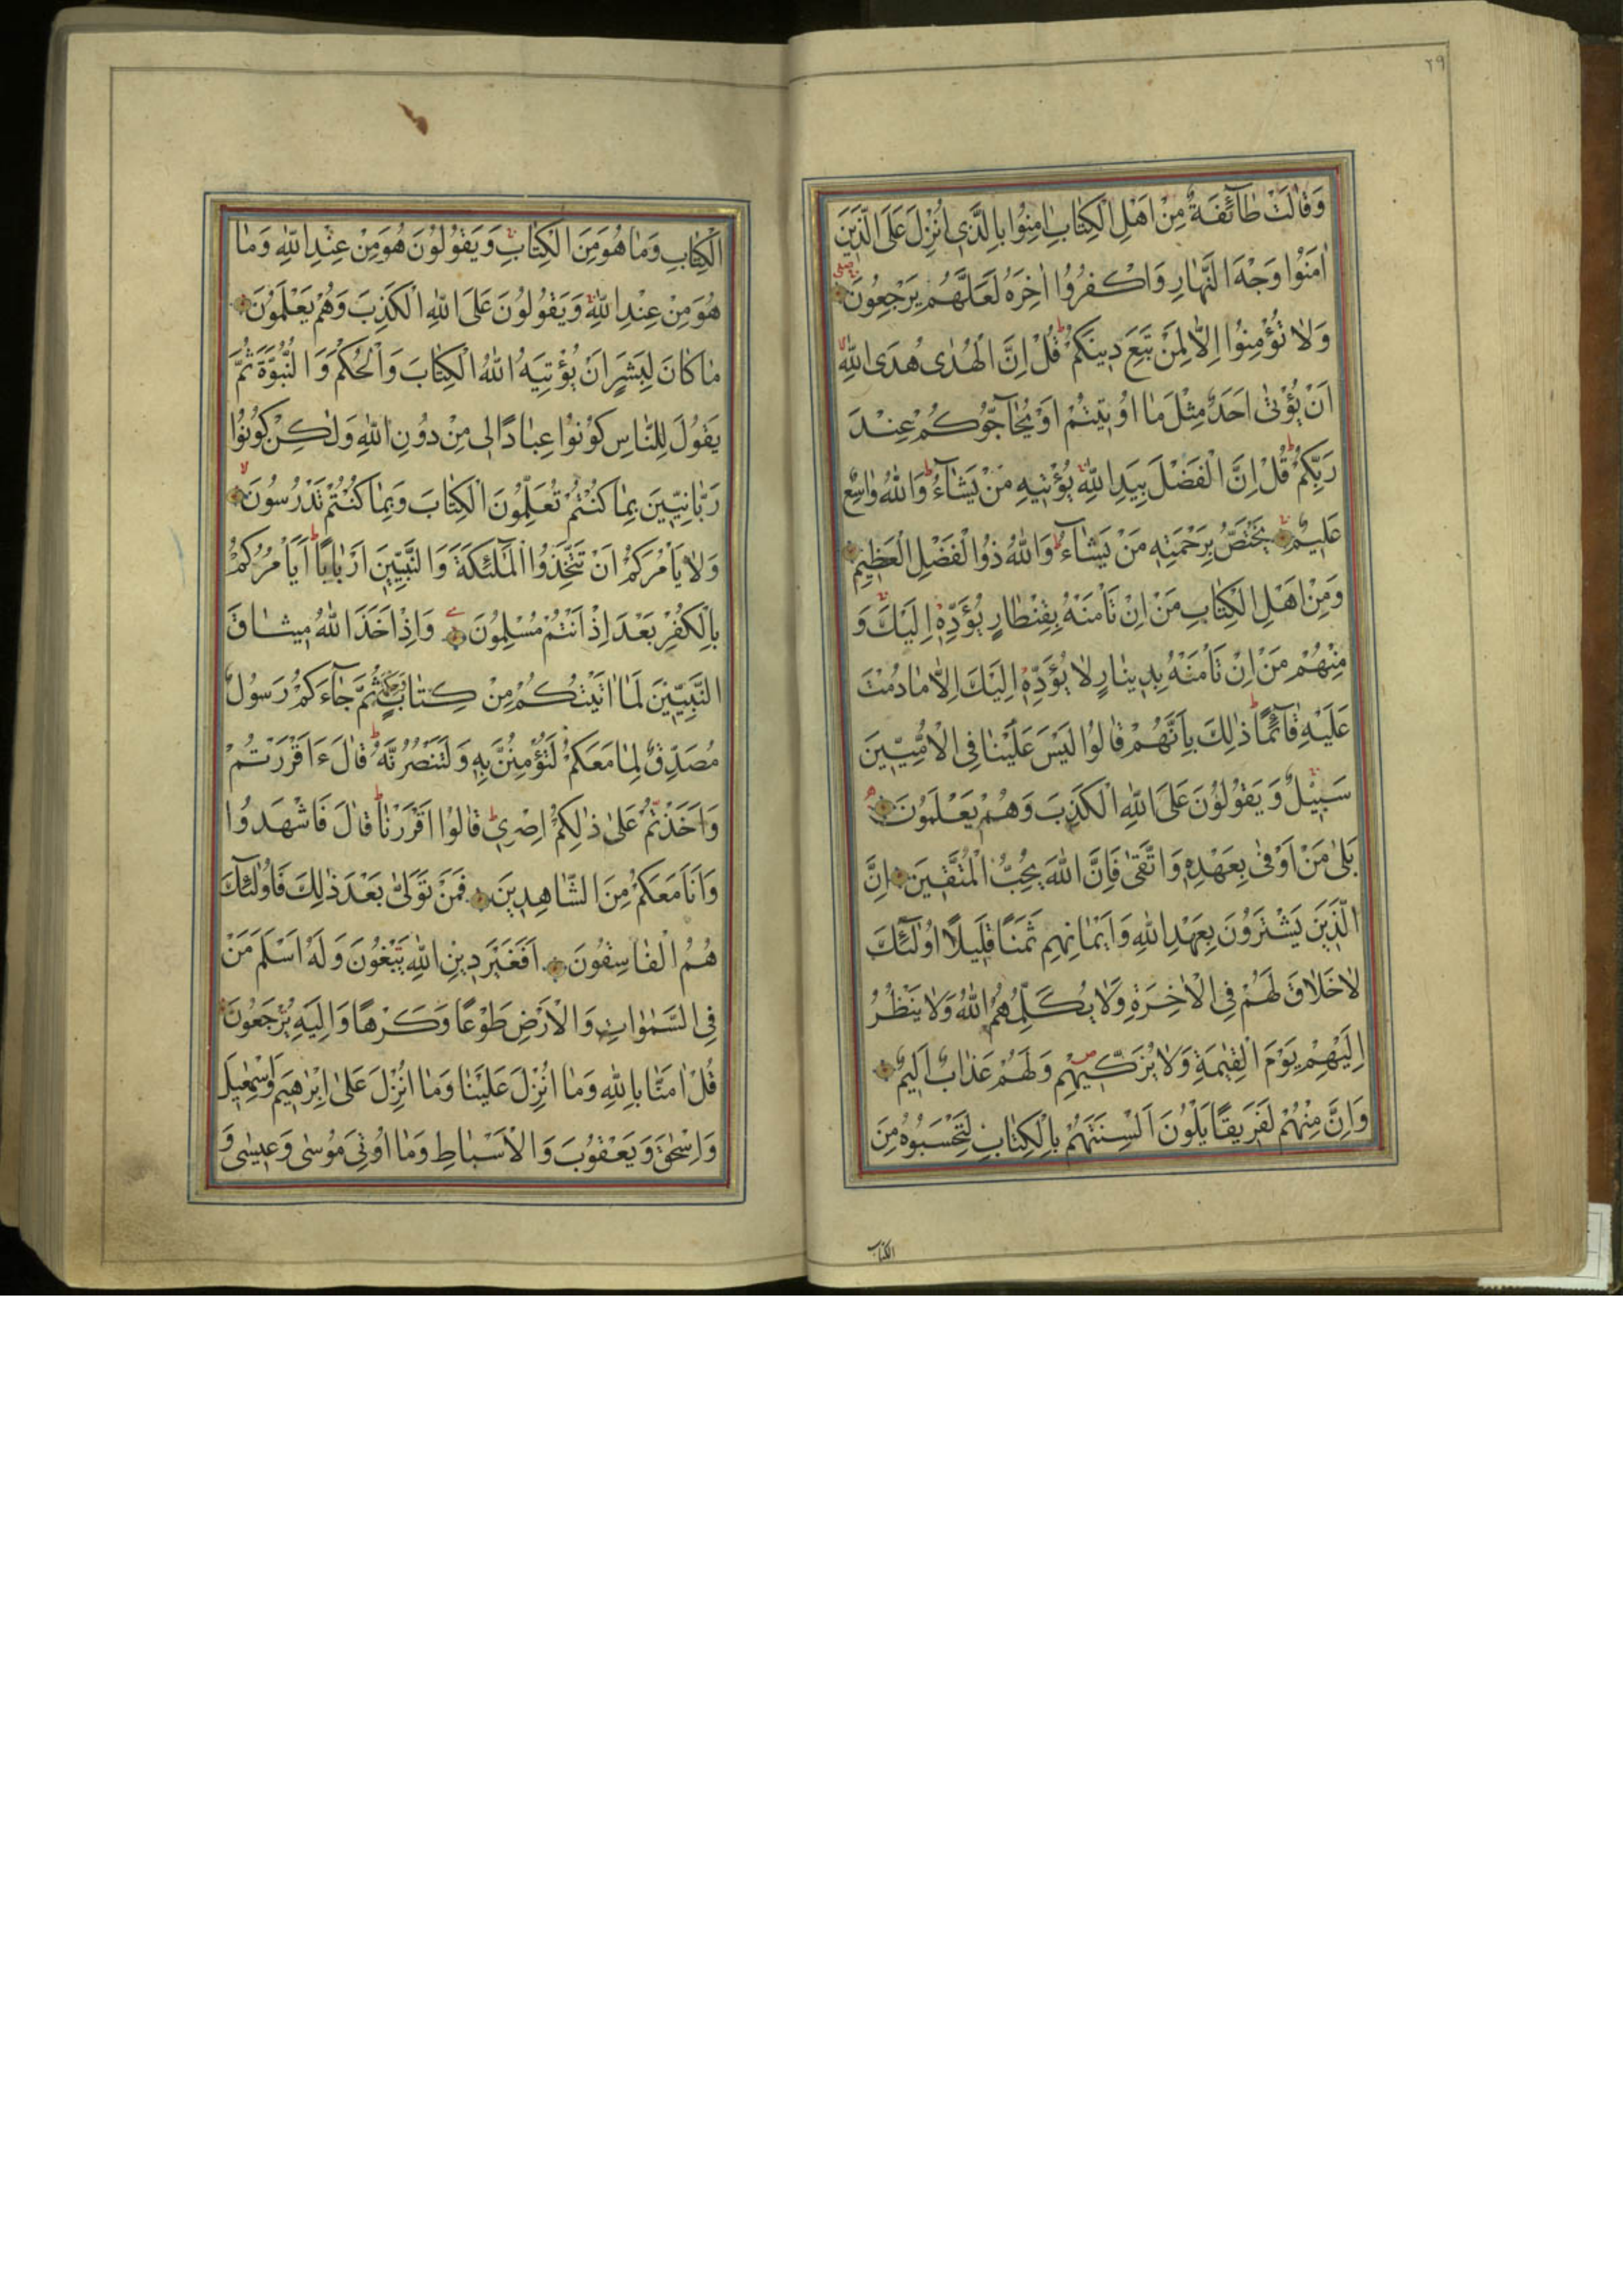 ٢٩
وَقَالَتْ طَآئِفَةٌ مِنْ اَهْلِ الْكِتَابِ اٰمِنُوا بِالَّذٖى اُنْزِلَ عَلَى الَّذٖينَ
اٰمَنُوا وَجْهَ النَّهَارِ وَاكْفُرُوا اٰخِرَهُ لَعَلَّهُمْ يَرْجِعُونَ
وَلَا تُؤْمِنُوا اِلَّا لِمَنْ تَبِعَ دٖينَكُمْ قُلْ اِنَّ الْهُدٰى هُدَى اللّٰهِ
اَنْ يُؤْتٰى اَحَدٌ مِثْلَ مَا اُو۫تٖيتُمْ اَوْ يُحَآجُّوكُمْ عِنْدَ
رَبِّكُمْ قُلْ اِنَّ الْفَضْلَ بِيَدِ اللّٰهِ يُؤْتٖيهِ مَنْ يَشَآءُ وَاللّٰهُ وَاسِعٌ
عَلٖيمٌ يَخْتَصُّ بِرَحْمَتِهٖ مَنْ يَشَآءُ وَاللّٰهُ ذُوالْفَضْلِ الْعَظٖيمِ
وَمِنْ اَهْلِ الْكِتَابِ مَنْ اِنْ تَاْمَنْهُ بِقِنْطَارٍ يُؤَدِّهٖ اِلَيْكَ وَ
مِنْهُمْ مَنْ اِنْ تَاْمَنْهُ بِدٖينَارٍ لَا يُؤَدِّهٖ اِلَيْكَ اِلَّا مَا دُمْتَ
عَلَيْهِ قَآئِمًا ذٰلِكَ بِاَنَّهُمْ قَالُوا لَيْسَ عَلَيْنَا فِى الْاُمِّيّٖينَ
سَبٖيلٌ وَيَقُولُونَ عَلَى اللّٰهِ الْكَذِبَ وَهُمْ يَعْلَمُونَ
بَلٰى مَنْ اَوْفٰى بِعَهْدِهٖ وَاتَّقٰى فَاِنَّ اللّٰهَ يُحِبُّ الْمُتَّقٖينَ اِنَّ
الَّذٖينَ يَشْتَرُونَ بِعَهْدِ اللّٰهِ وَاَيْمَانِهِمْ ثَمَنًا قَلٖيلًا اُولٰٓئِكَ
لَا خَلَاقَ لَهُمْ فِى الْاٰخِرَةِ وَلَا يُكَلِّمُهُمُ اللّٰهُ وَلَا يَنْظُرُ
اِلَيْهِمْ يَوْمَ الْقِيٰمَةِ وَلَا يُزَكّٖيهِمْ وَلَهُمْ عَذَابٌ اَلٖيمٌ
وَاِنَّ مِنْهُمْ لَفَرٖيقًا يَلْوُنَ اَلْسِنَتَهُمْ بِالْكِتَابِ لِتَحْسَبُوهُ مِنَ
الكتاب
الْكِتَابِ وَمَا هُوَ مِنَ الْكِتَابِ وَيَقُولُونَ هُوَ مِنْ عِنْدِ اللّٰهِ وَمَا
هُوَ مِنْ عِنْدِ اللّٰهِ وَيَقُولُونَ عَلَى اللّٰهِ الْكَذِبَ وَهُمْ يَعْلَمُونَ
مَا كَانَ لِبَشَرٍ اَنْ يُؤْتِيَهُ اللّٰهُ الْكِتَابَ وَالْحُكْمَ وَالنُّبُوَّةَ ثُمَّ
يَقُولَ لِلنَّاسِ كُونُوا عِبَادًا لٖى مِنْ دُونِ اللّٰهِ وَلٰكِنْ كُونُوا
رَبَّانِيّٖينَ بِمَا كُنْتُمْ تُعَلِّمُونَ الْكِتَابَ وَبِمَا كُنْتُمْ تَدْرُسُونَ
وَلَا يَاْمُرَكُمْ اَنْ تَتَّخِذُوا الْمَلٰٓئِكَةَ وَالنَّبِيّٖينَ اَرْبَابًا اَيَاْمُرُكُمْ
بِالْكُفْرِ بَعْدَ اِذْ اَنْتُمْ مُسْلِمُونَ وَاِذْ اَخَذَ اللّٰهُ مٖيثَاقَ
النَّبِيّٖينَ لَمَا اٰتَيْتُكُمْ مِنْ كِتَابٍ وَحِكْمَةٍ ثُمَّ جَآءَكُمْ رَسُولٌ
مُصَدِّقٌ لِمَا مَعَكُمْ لَتُؤْمِنُنَّ بِهٖ وَلَتَنْصُرُنَّهُ قَالَ ءَاَقْرَرْتُمْ
وَاَخَذْتُمْ عَلٰى ذٰلِكُمْ اِصْرٖى قَالُوا اَقْرَرْنَا قَالَ فَاشْهَدُوا
وَاَنَا مَعَكُمْ مِنَ الشَّاهِدٖينَ فَمَنْ تَوَلّٰى بَعْدَ ذٰلِكَ فَاُولٰٓئِكَ
هُمُ الْفَاسِقُونَ اَفَغَيْرَ دٖينِ اللّٰهِ يَبْغُونَ وَلَهُ اَسْلَمَ مَنْ
فِى السَّمٰوَاتِ وَالْاَرْضِ طَوْعًا وَكَرْهًا وَاِلَيْهِ يُرْجَعُونَ
قُلْ اٰمَنَّا بِاللّٰهِ وَمَا اُنْزِلَ عَلَيْنَا وَمَا اُنْزِلَ عَلٰى اِبْرٰهٖيمَ وَاِسْمٰعٖيلَ
وَاِسْحٰقَ وَيَعْقُوبَ وَالْاَسْبَاطِ وَمَا اُو۫تِىَ مُوسٰى وَعٖيسٰى وَ